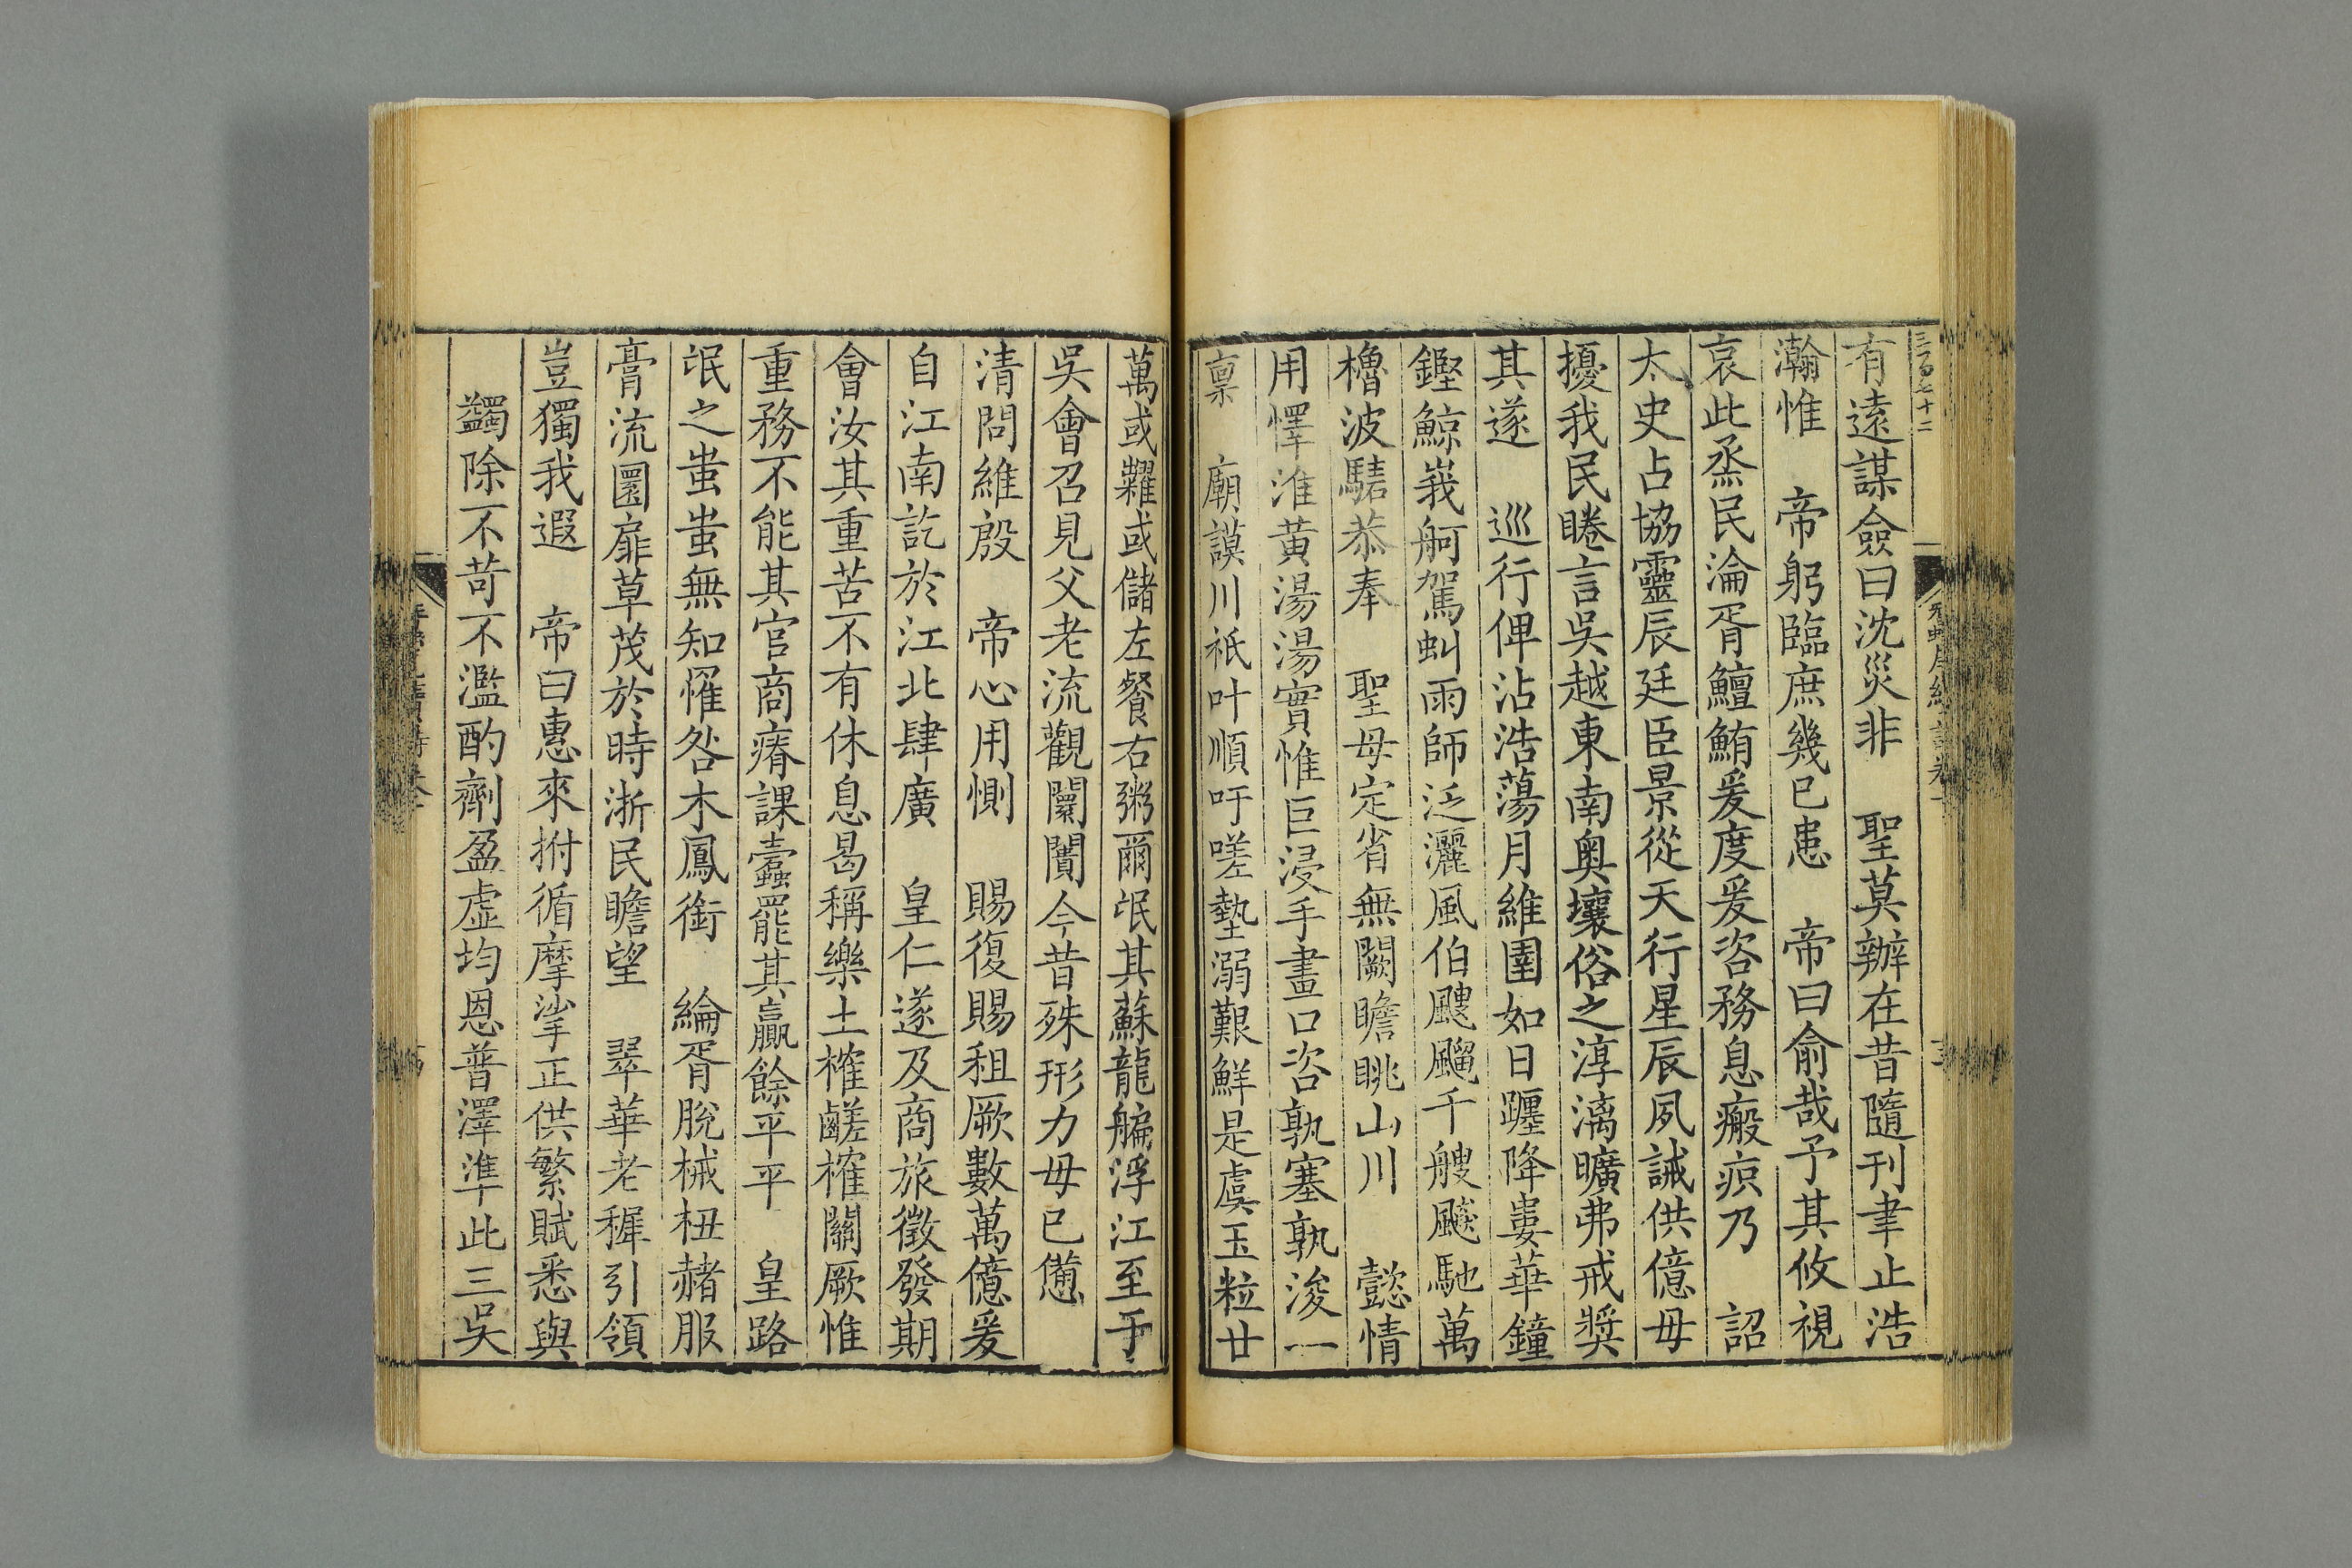 三百七十二
有遠謀僉曰沈災非　聖莫辦在昔隨刊聿止浩
瀚惟　帝躬臨庶幾已患　帝曰俞哉予其攸視
哀此烝民淪胥鱣鮪爰度爰咨務息瘢痕乃　詔
太史占協靈辰廷臣景從天行星辰夙誡供億毋
擾我民睠言吳越東南奥壤俗之淳漓曠弗戒奨
其遂　巡行俾沾浩蕩月維圉如日躔降婁華鐘
鏗鯨峩舸駕虬雨師泛灑風伯颼飀千艘飈馳萬
櫓波驕恭奉　聖母定省無闕瞻眺山川　懿情
用懌淮黃湯湯實惟巨浸手畫口咨孰塞孰浚一
稟　廟謨川祇叶順吁嗟墊溺艱鮮是虞玉粒廿
萬或糶或儲左餐右粥爾氓其蘇龍艑浮江至于
吳會召見父老流觀闤闠今昔殊形力毋已憊
清問維殷　帝心用惻　賜復賜租厥數萬億爰
自江南訖於江北肆廣　皇仁遂及商旅徵發期
會汝其重苦不有休息曷稱樂土榷鹺榷關厥惟
重務不能其官商瘠課蠹罷其贏餘平平　皇路
氓之蚩蚩無知罹咎木鳳銜　綸胥脫械杻赭服
膏流圜扉草茂於時浙民瞻望　翠華老穉引領
豈獨我遐　帝曰惠來拊循摩挲正供繁賦悉與
蠲除不苛不濫酌劑盈虛均恩普澤準此三吳